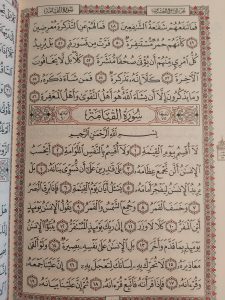 فَمَا تَنفَعُهُمْ شَفَٰعَةُ ٱلشَّٰفِعِينَ ٤٨ فَمَا لَهُمْ عَنِ ٱلتَّذْكِرَةِ مُعْرِضِينَ
٤٩ كَأَنَّهُمْ حُمُرٌ مُّسْتَنفِرَةٌ ٥٠ فَرَّتْ مِن قَسْوَرَةٍۭ ٥١ بَلْ يُرِيدُ
كُلُّ ٱمْرِئٍ مِّنْهُمْ أَن يُؤْتَىٰ صُحُفًا مُّنَشَّرَةً ٥٢ كَلَّا بَل لَّا يَخَافُونَ
ٱلْءَاخِرَةَ ٥٣ كَلَّآ إِنَّهُۥ تَذْكِرَةٌ ٥٤ فَمَن شَآءَ ذَكَرَهُۥ ٥٥
وَمَا يَذْكُرُونَ إِلَّآ أَن يَشَآءَ ٱللَّهُ هُوَ أَهْلُ ٱلتَّقْوَىٰ وَأَهْلُ ٱلْمَغْفِرَةِ ٥٦
سُورَةُ ٱلْقِيَامَةِ
بِسْمِ ٱللَّهِ ٱلرَّحْمَٰنِ ٱلرَّحِيمِ
لَآ أُقْسِمُ بِيَوْمِ ٱلْقِيَٰمَةِ ١ وَلَآ أُقْسِمُ بِٱلنَّفْسِ ٱللَّوَّامَةِ ٢ أَيَحْسَبُ
ٱلْإِنسَٰنُ أَلَّن نَّجْمَعَ عِظَامَهُۥ ٣ بَلَىٰ قَٰدِرِينَ عَلَىٰٓ أَن نُّسَوِّىَ بَنَانَهُۥ ٤ بَلْ
يُرِيدُ ٱلْإِنسَٰنُ لِيَفْجُرَ أَمَامَهُۥ ٥ يَسْـَٔلُ أَيَّانَ يَوْمُ ٱلْقِيَٰمَةِ ٦ فَإِذَا بَرِقَ ٱلْبَصَرُ
٧ وَخَسَفَ ٱلْقَمَرُ ٨ وَجُمِعَ ٱلشَّمْسُ وَٱلْقَمَرُ ٩ يَقُولُ ٱلْإِنسَٰنُ يَوْمَئِذٍ
أَيْنَ ٱلْمَفَرُّ ١٠ كَلَّا لَا وَزَرَ ١١ إِلَىٰ رَبِّكَ يَوْمَئِذٍ ٱلْمُسْتَقَرُّ ١٢ يُنَبَّؤُا۟ ٱلْإِنسَٰنُ
يَوْمَئِذٍۭ بِمَا قَدَّمَ وَأَخَّرَ ١٣ بَلِ ٱلْإِنسَٰنُ عَلَىٰ نَفْسِهِۦ بَصِيرَةٌ ١٤ وَلَوْ أَلْقَىٰ
مَعَاذِيرَهُۥ ١٥ لَا تُحَرِّكْ بِهِۦ لِسَانَكَ لِتَعْجَلَ بِهِۦٓ ١٦ إِنَّ عَلَيْنَا جَمْعَهُۥ
وَقُرْءَانَهُۥ ١٧ فَإِذَا قَرَأْنَٰهُ فَٱتَّبِعْ قُرْءَانَهُۥ ١٨ ثُمَّ إِنَّ عَلَيْنَا بَيَانَهُۥ ١٩